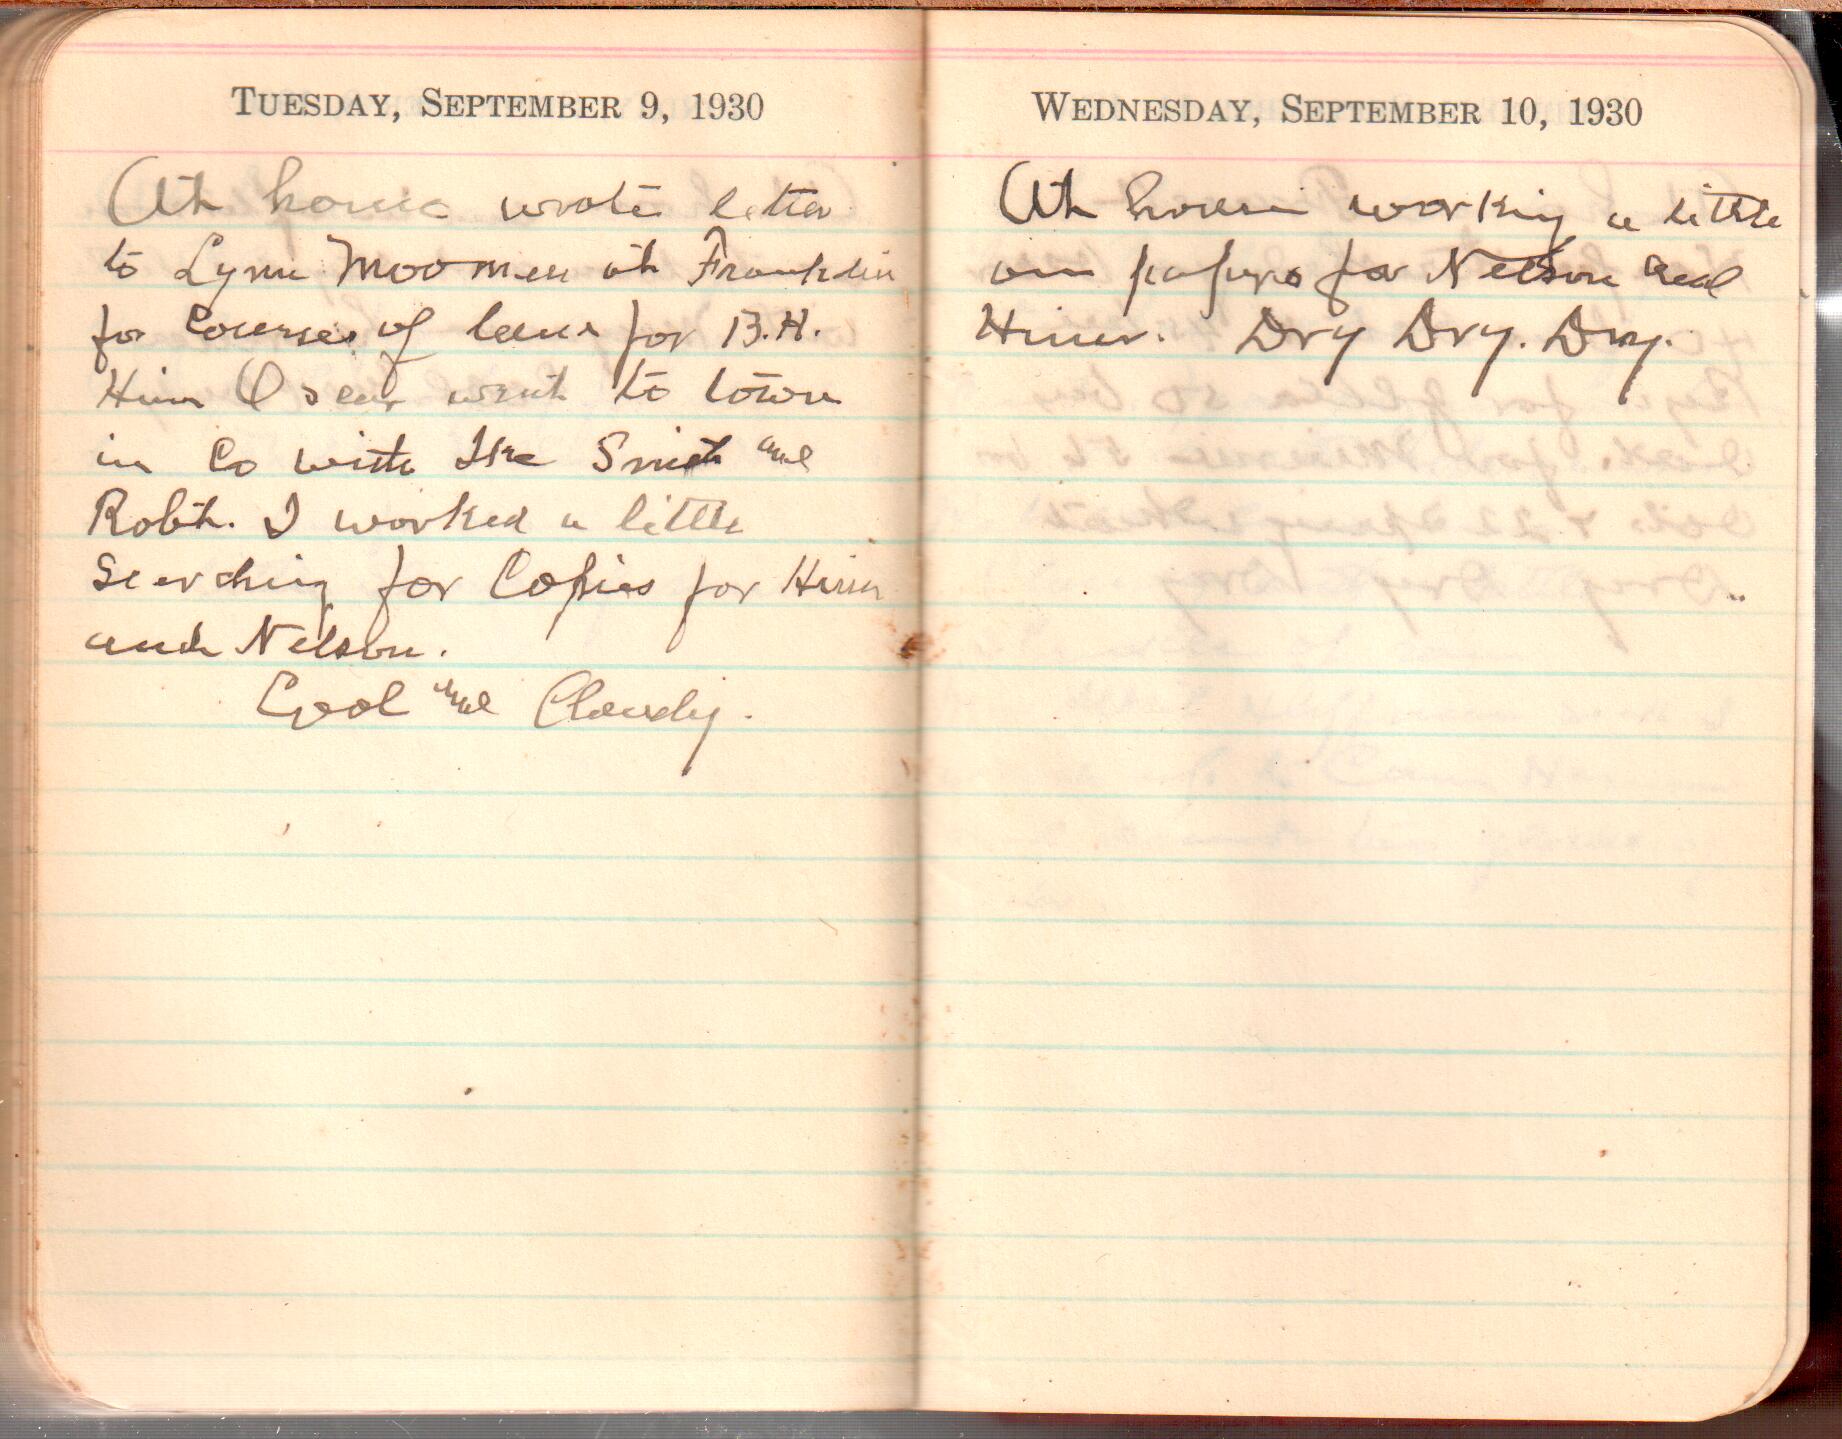 TUESDAY, SEPTEMBER 9, 1930
At home wrote letter
to Lynn Moomau at Franklin
for Courses of land for B.H.
Hiner Oscar went to town
in Co with Ike Smith and
Robt. I worked a little
Serching for Copies for Hiner
and Nelson.
Cool and Cloudy.
WEDNESDAY, SEPTEMBER 10, 1930
At home working a little
on papers for Nelson and
Hiner. Dry Dry. Dry.